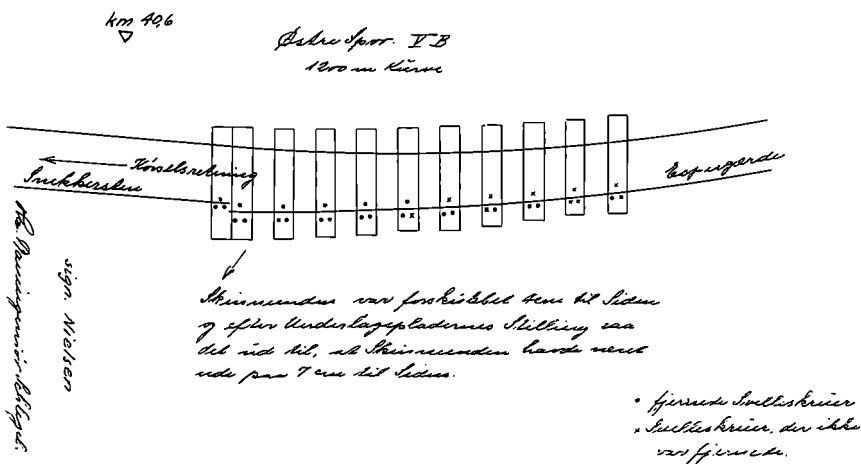 km 40,6
Østre Spor. V B
1200 m Kurve
Kørselsretning
Snekkersten
Espergærde
Skinneenden var forskubbet 4 cm til Siden
og efter Underlagspladernes Stilling saa
det ud til, at Skinneenden havde været
ude paa 7 cm til Siden.
sign. Nielsen
• fjernede Svelleskruer
× Svelleskruer, der ikke
var fjernede.